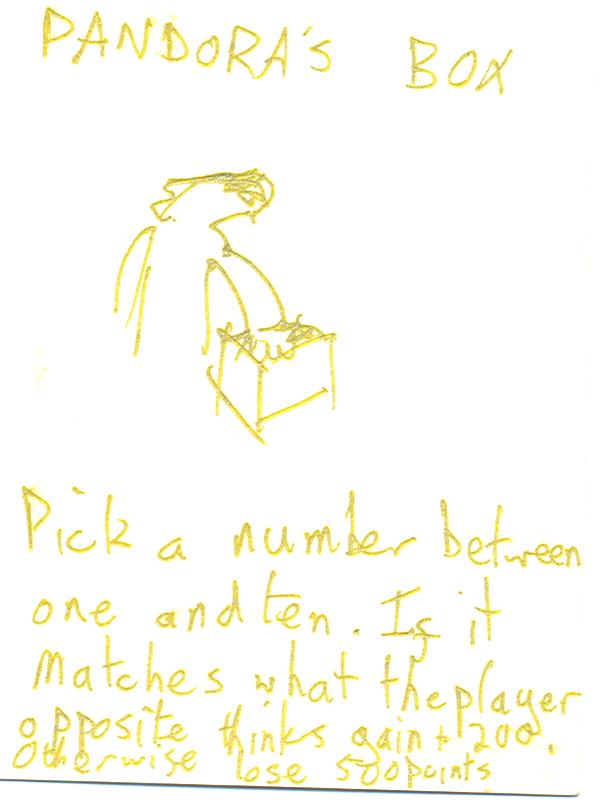 PANDORA'S BOX
Pick a number between
one and ten. If it
Matches what the player
opposite thinks gain + 200.
Otherwise lose 500 points